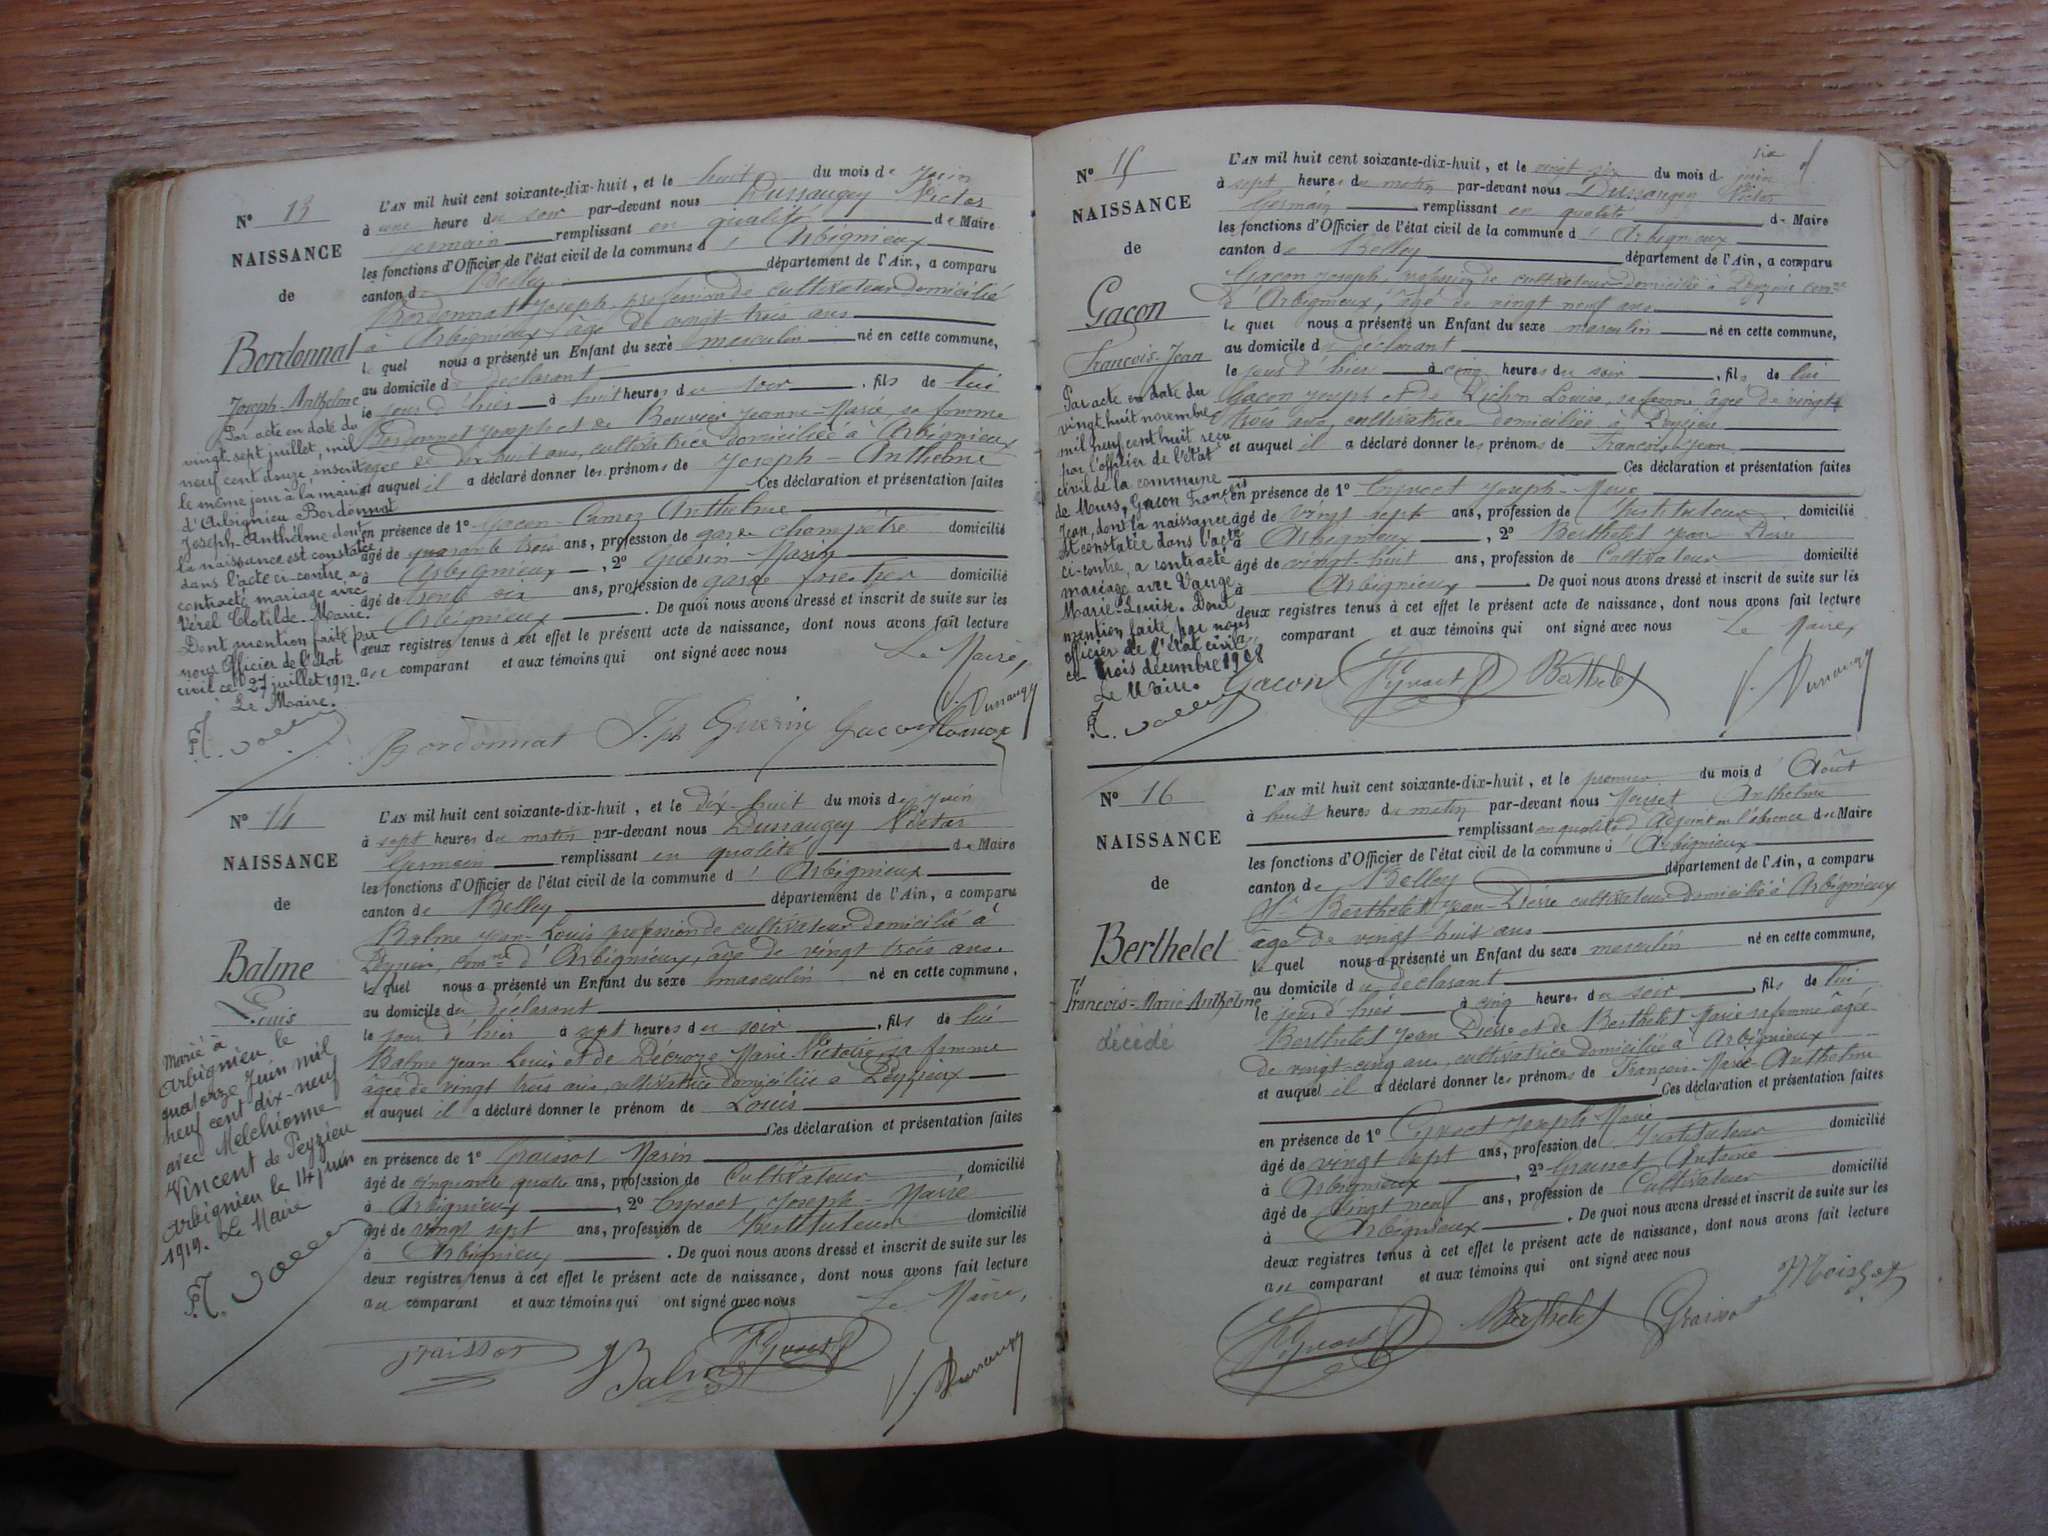 N° 13
NAISSANCE
de
Bordonnat
Joseph-Anthelme
Par acte en date du
vingt-sept juillet, mil
neuf cent douze inscrit
le même jour à la mairie
d'Arbignieu Bordonnat
Joseph-Anthelme dont
la naissance est constatée
dans l'acte ci-contre a
contracté mariage avec
Vérel Clotilde-Marie.
Dont mention faite par
nous Officier de l'état
civil ce 27 juillet 1912.
Le Maire.
L'AN mil huit cent soixante-dix-huit, et le huit du mois de juin
à une heure du soir par-devant nous Dussaugey Victor
Germain remplissant en qualité de Maire
les fonctions d'Officier de l'état civil de la commune d'Arbignieux
canton de Belley département de l'Ain, a comparu
Bordonnat Joseph, profession de cultivateur domicilié
à Arbignieux, âgé de vingt-trois ans
lequel nous a présenté un Enfant du sexe masculin né en cette commune,
au domicile du déclarant
le jour d'hier à huit heures du soir, fils de lui
Bordonnat Joseph et de Bouvier Jeanne-Marie, sa femme
âgée de dix huit ans, cultivatrice domiciliée à Arbignieux
et auquel il a déclaré donner les prénoms de Joseph-Anthelme
Ces déclaration et présentation faites
en présence de 1° Gacon-Camoz Anthelme
âgé de quarante trois ans, profession de garde champêtre domicilié
à Arbignieux, 2° Guérin Marin
âgé de trente six ans, profession de garde forestier domicilié
à Arbignieux. De quoi nous avons dressé et inscrit de suite sur les
deux registres tenus à cet effet le présent acte de naissance, dont nous avons fait lecture
au comparant et aux témoins qui ont signé avec nous Le Maire,
V. Dussaugey
Bordonnat Jph Guerin Gacon Camoz
N° 14
NAISSANCE
de
Balme
Louis
Marié à
Arbignieu le
quatorze Juin mil
neuf cent dix-neuf
avec Melchionne
Vincent de Peyzieu
Arbignieu le 14 juin
1919. Le Maire
L'AN mil huit cent soixante-dix-huit, et le dix-huit du mois de juin
à sept heures du matin par-devant nous Dussaugey Victor
Germain remplissant en qualité de Maire
les fonctions d'Officier de l'état civil de la commune d'Arbignieux
canton de Belley département de l'Ain, a comparu
Balme Jean-Louis profession de cultivateur domicilié à
Peyzieu, comne d'Arbignieux, âgé de vingt trois ans.
lequel nous a présenté un Enfant du sexe masculin né en cette commune,
au domicile du déclarant
le jour d'hier à sept heures du soir, fils de lui
Balme Jean Louis et de Décroze Marie Victoire, sa femme
âgée de vingt trois ans, cultivatrice domiciliée à Peyzieux
et auquel il a déclaré donner le prénom de Louis
Ces déclaration et présentation faites
en présence de 1° Graissot Marin
âgé de cinquante quatre ans, profession de Cultivateur, domicilié
à Arbignieux, 2° Cyvoct Joseph-Marie
âgé de vingt sept ans, profession de Instituteur domicilié
à Arbignieux. De quoi nous avons dressé et inscrit de suite sur les
deux registres tenus à cet effet le présent acte de naissance, dont nous avons fait lecture
au comparant et aux témoins qui ont signé avec nous Le Maire,
Graissot Balme Cyvoct V. Dussaugey
N° 15
NAISSANCE
de
Gacon
François-Jean
Par acte en date du
vingt huit novembre
mil neuf cent huit reçu
par l'officier de l'état
civil de la commune
de Murs, Gacon François
Jean, dont la naissance
est constatée dans l'acte
ci-contre, a contracté
mariage avec Vauge
Marie-Louise. Dont
mention faite par nous
officier de l'état civil
ce trois décembre 1908
Le Maire.
L'AN mil huit cent soixante-dix-huit, et le vingt six du mois de juin
à sept heures du matin par-devant nous Dussaugey Victor
Germain remplissant en qualité de Maire
les fonctions d'Officier de l'état civil de la commune d'Arbignieux
canton de Belley département de l'Ain, a comparu
Gacon Joseph, profession de cultivateur domicilié à Peyzieu comne
d'Arbignieux, âgé de vingt neuf ans
lequel nous a présenté un Enfant du sexe masculin né en cette commune,
au domicile du déclarant
le jour d'hier à cinq heures du soir, fils de lui
Gacon Joseph et de Pichon Louise, sa femme âgée de vingt
trois ans, cultivatrice domiciliée à Peyzieu
et auquel il a déclaré donner les prénoms de François-Jean
Ces déclaration et présentation faites
en présence de 1° Cyvoct Joseph-Marie
âgé de vingt sept ans, profession de Instituteur domicilié
à Arbignieux, 2° Berthelet Jean Pierre
âgé de vingt-huit ans, profession de Cultivateur domicilié
à Arbignieux. De quoi nous avons dressé et inscrit de suite sur les
deux registres tenus à cet effet le présent acte de naissance, dont nous avons fait lecture
au comparant et aux témoins qui ont signé avec nous Le Maire,
Gacon Cyvoct Berthelet V. Dussaugey
N° 16
NAISSANCE
de
Berthelet
François-Marie Anthelme
décédé
L'AN mil huit cent soixante-dix-huit, et le premier du mois d'Août
à huit heures du matin par-devant nous Moiset Anthelme
remplissant en qualité d'Adjoint en l'absence de Maire
les fonctions d'Officier de l'état civil de la commune d'Arbignieux
canton de Belley département de l'Ain, a comparu
Sr Berthelet Jean-Pierre cultivateur domicilié à Arbignieux
âgé de vingt-huit ans
lequel nous a présenté un Enfant du sexe masculin né en cette commune,
au domicile du déclarant
le jour d'hier à cinq heures du soir, fils de lui
Berthelet Jean Pierre et de Berthelet Marie sa femme âgée
de vingt-cinq ans, cultivatrice domiciliée à Arbignieux
et auquel il a déclaré donner les prénoms de François-Marie-Anthelme
Ces déclaration et présentation faites
en présence de 1° Cyvoct Joseph Marie
âgé de vingt sept ans, profession de Instituteur domicilié
à Arbignieux, 2° Graissot Antoine
âgé de vingt neuf ans, profession de Cultivateur domicilié
à Arbignieux. De quoi nous avons dressé et inscrit de suite sur les
deux registres tenus à cet effet le présent acte de naissance, dont nous avons fait lecture
au comparant et aux témoins qui ont signé avec nous
Cyvoct Berthelet Graissot Moiset